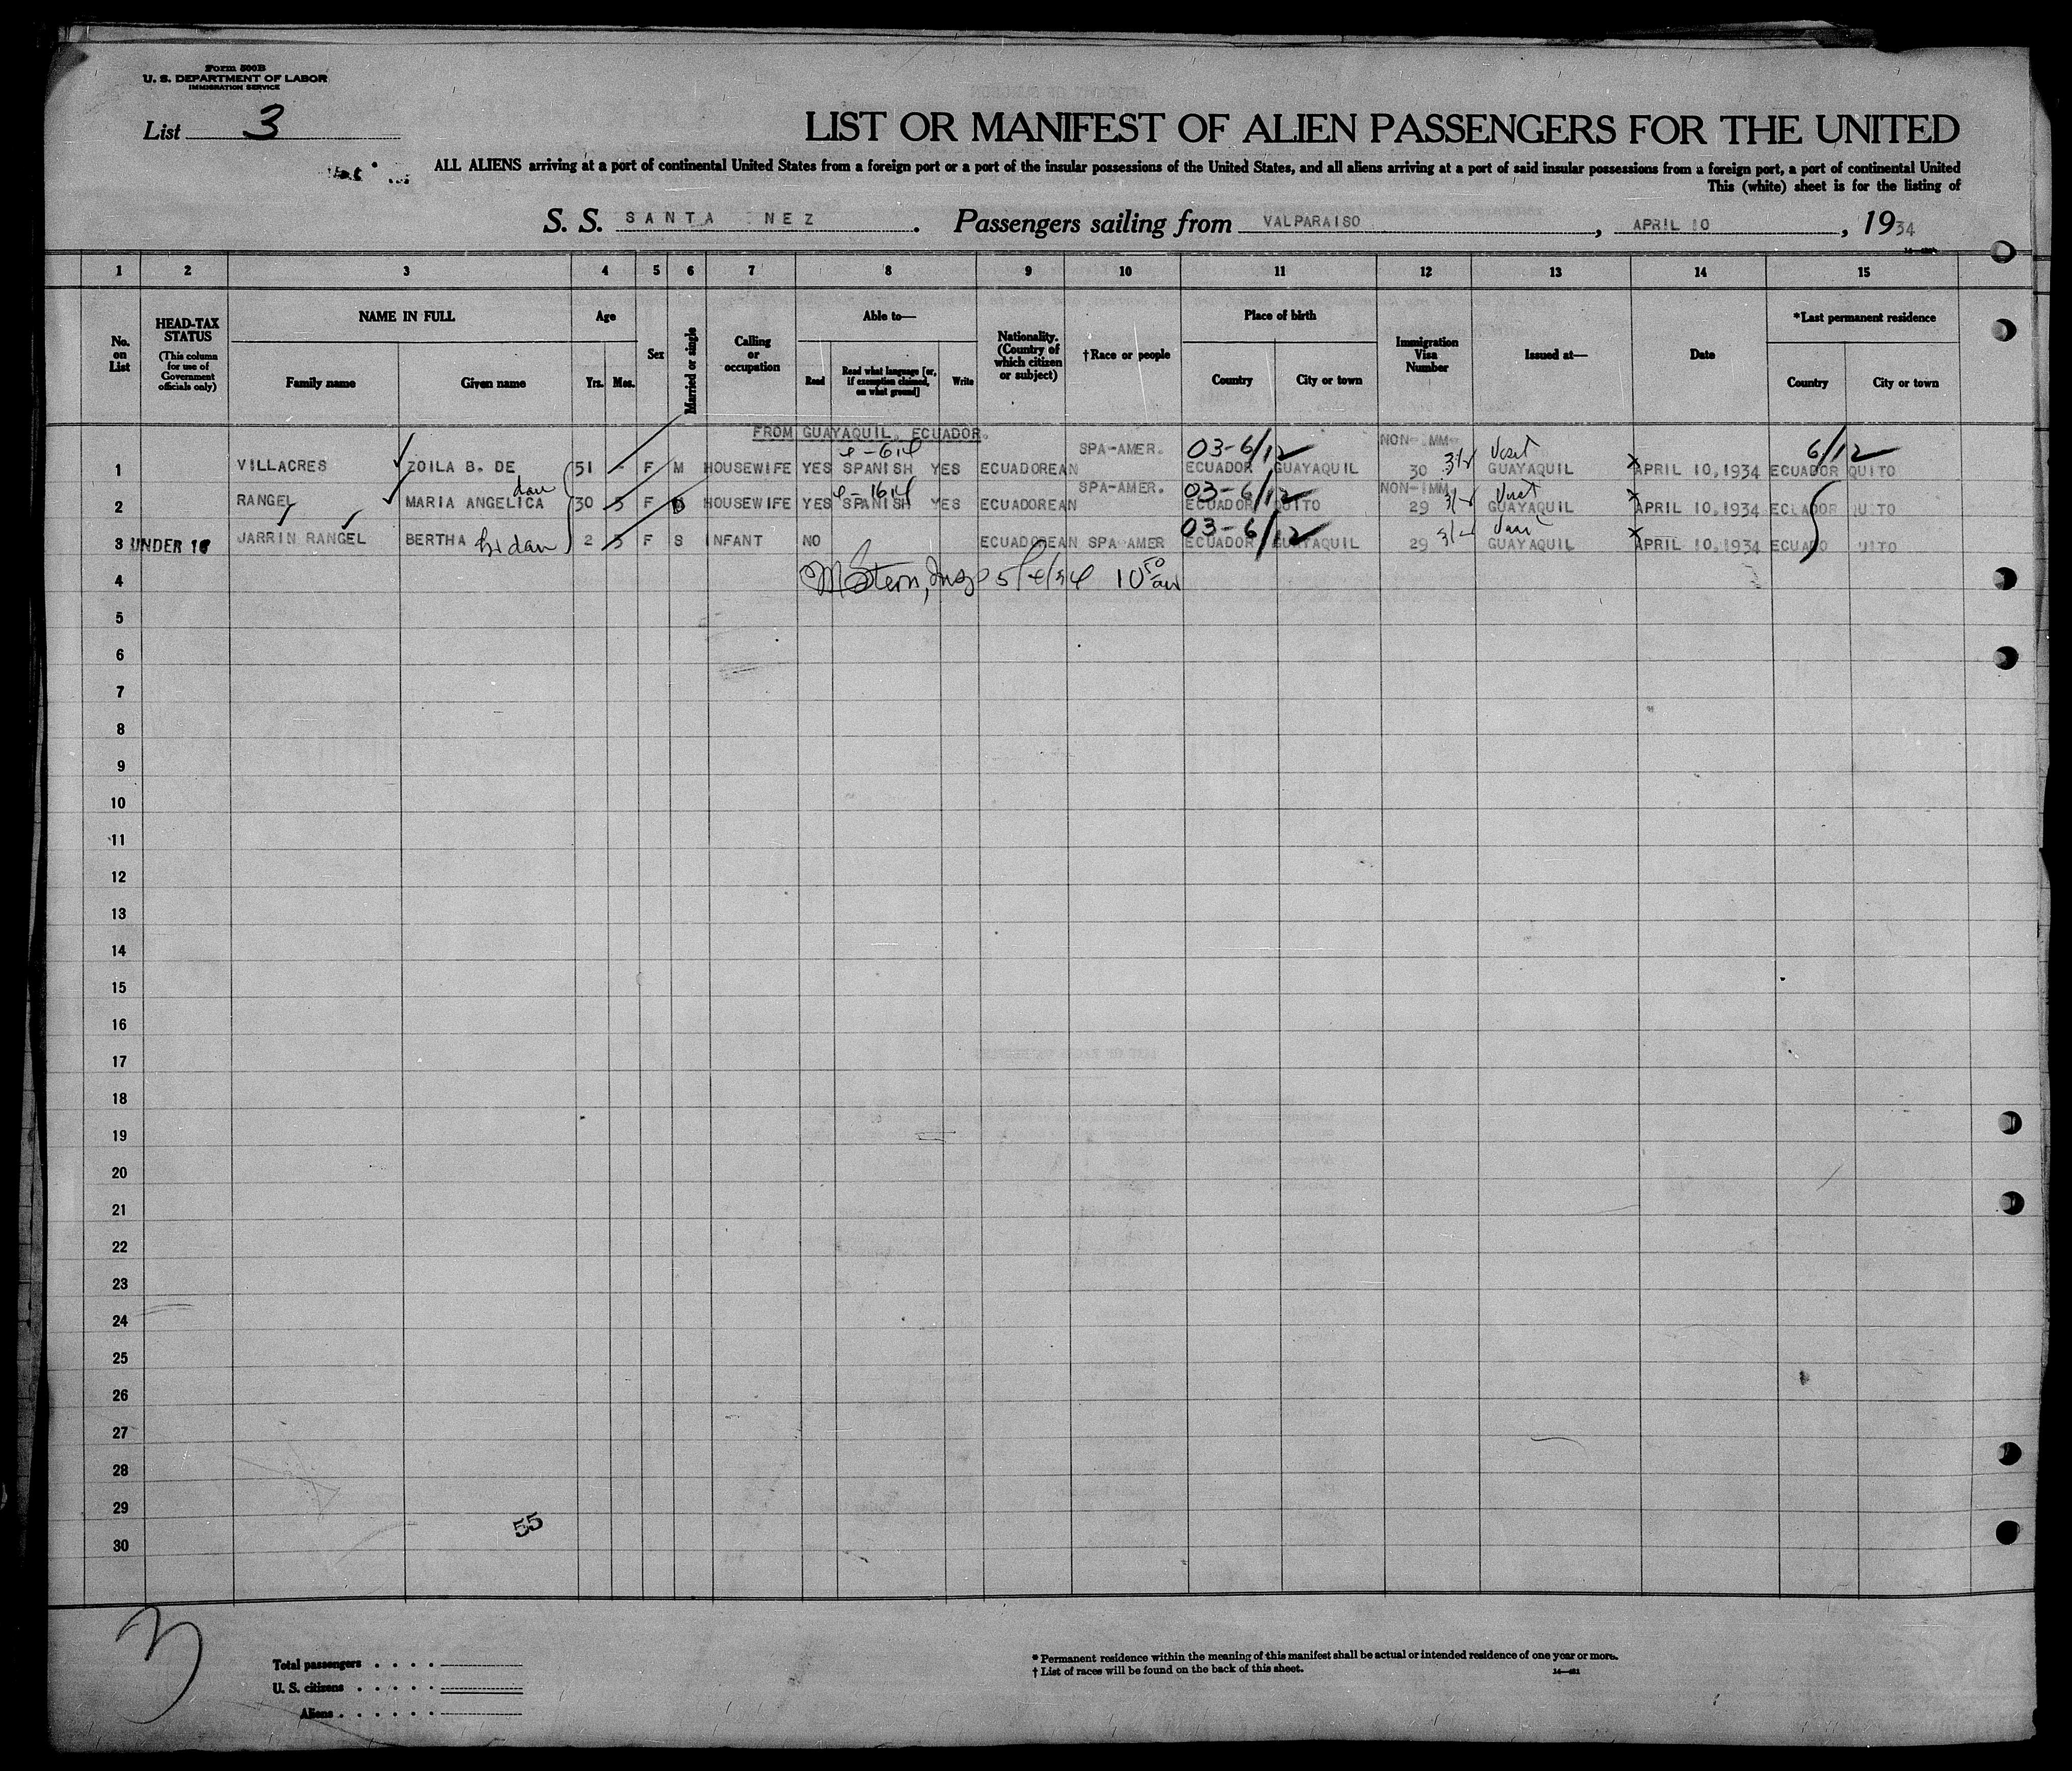 Form 500B
U. S. DEPARTMENT OF LABOR
IMMIGRATION SERVICE
List 3
LIST OR MANIFEST OF ALIEN PASSENGERS FOR THE UNITED
ALL ALIENS arriving at a port of continental United States from a foreign port or a port of the insular possessions of the United States, and all aliens arriving at a port of said insular possessions from a foreign port, a port of continental United
This (white) sheet is for the listing of
S. S. SANTA INEZ . Passengers sailing from VALPARAISO , APRIL 10 , 1934
1 2 3 4 5 6 7 8 9 10 11 12 13 14 15
No. on List
HEAD-TAX STATUS (This column for use of Government officials only)
NAME IN FULL
Family name
Given name
Age
Yrs. Mos.
Sex
Married or single
Calling or occupation
Able to—
Read
Read what language [or, if exemption claimed, on what ground]
Write
Nationality. (Country of which citizen or subject)
†Race or people
Place of birth
Country
City or town
Immigration Visa Number
Issued at—
Date
*Last permanent residence
Country
City or town
FROM GUAYAQUIL, ECUADOR.
SPA-AMER. 03-6/12 NON-IMM- 6/12
1 VILLACRES ZOILA B. DE 51 - F M HOUSEWIFE YES SPANISH YES ECUADOREAN ECUADOR GUAYAQUIL 30 GUAYAQUIL APRIL 10,1934 ECUADOR QUITO
dau SPA-AMER. 03-6/12 NON-IMM
2 RANGEL MARIA ANGELICA 30 5 F HOUSEWIFE YES SPANISH YES ECUADOREAN ECUADOR QUITO 29 GUAYAQUIL APRIL 10,1934 ECUADOR QUITO
03-6/12
3 UNDER 16 JARRIN RANGEL BERTHA dau 2 5 F S INFANT NO ECUADOREAN SPA-AMER ECUADOR GUAYAQUIL 29 GUAYAQUIL APRIL 10,1934 ECUADO QUITO
4 M Stern, Insp 10 50 am
5
6
7
8
9
10
11
12
13
14
15
16
17
18
19
20
21
22
23
24
25
26
27
28
29
55
30
3
Total passengers . . . .
U. S. citizens . . . . .
Aliens . . . . . .
* Permanent residence within the meaning of this manifest shall be actual or intended residence of one year or more.
† List of races will be found on the back of this sheet.